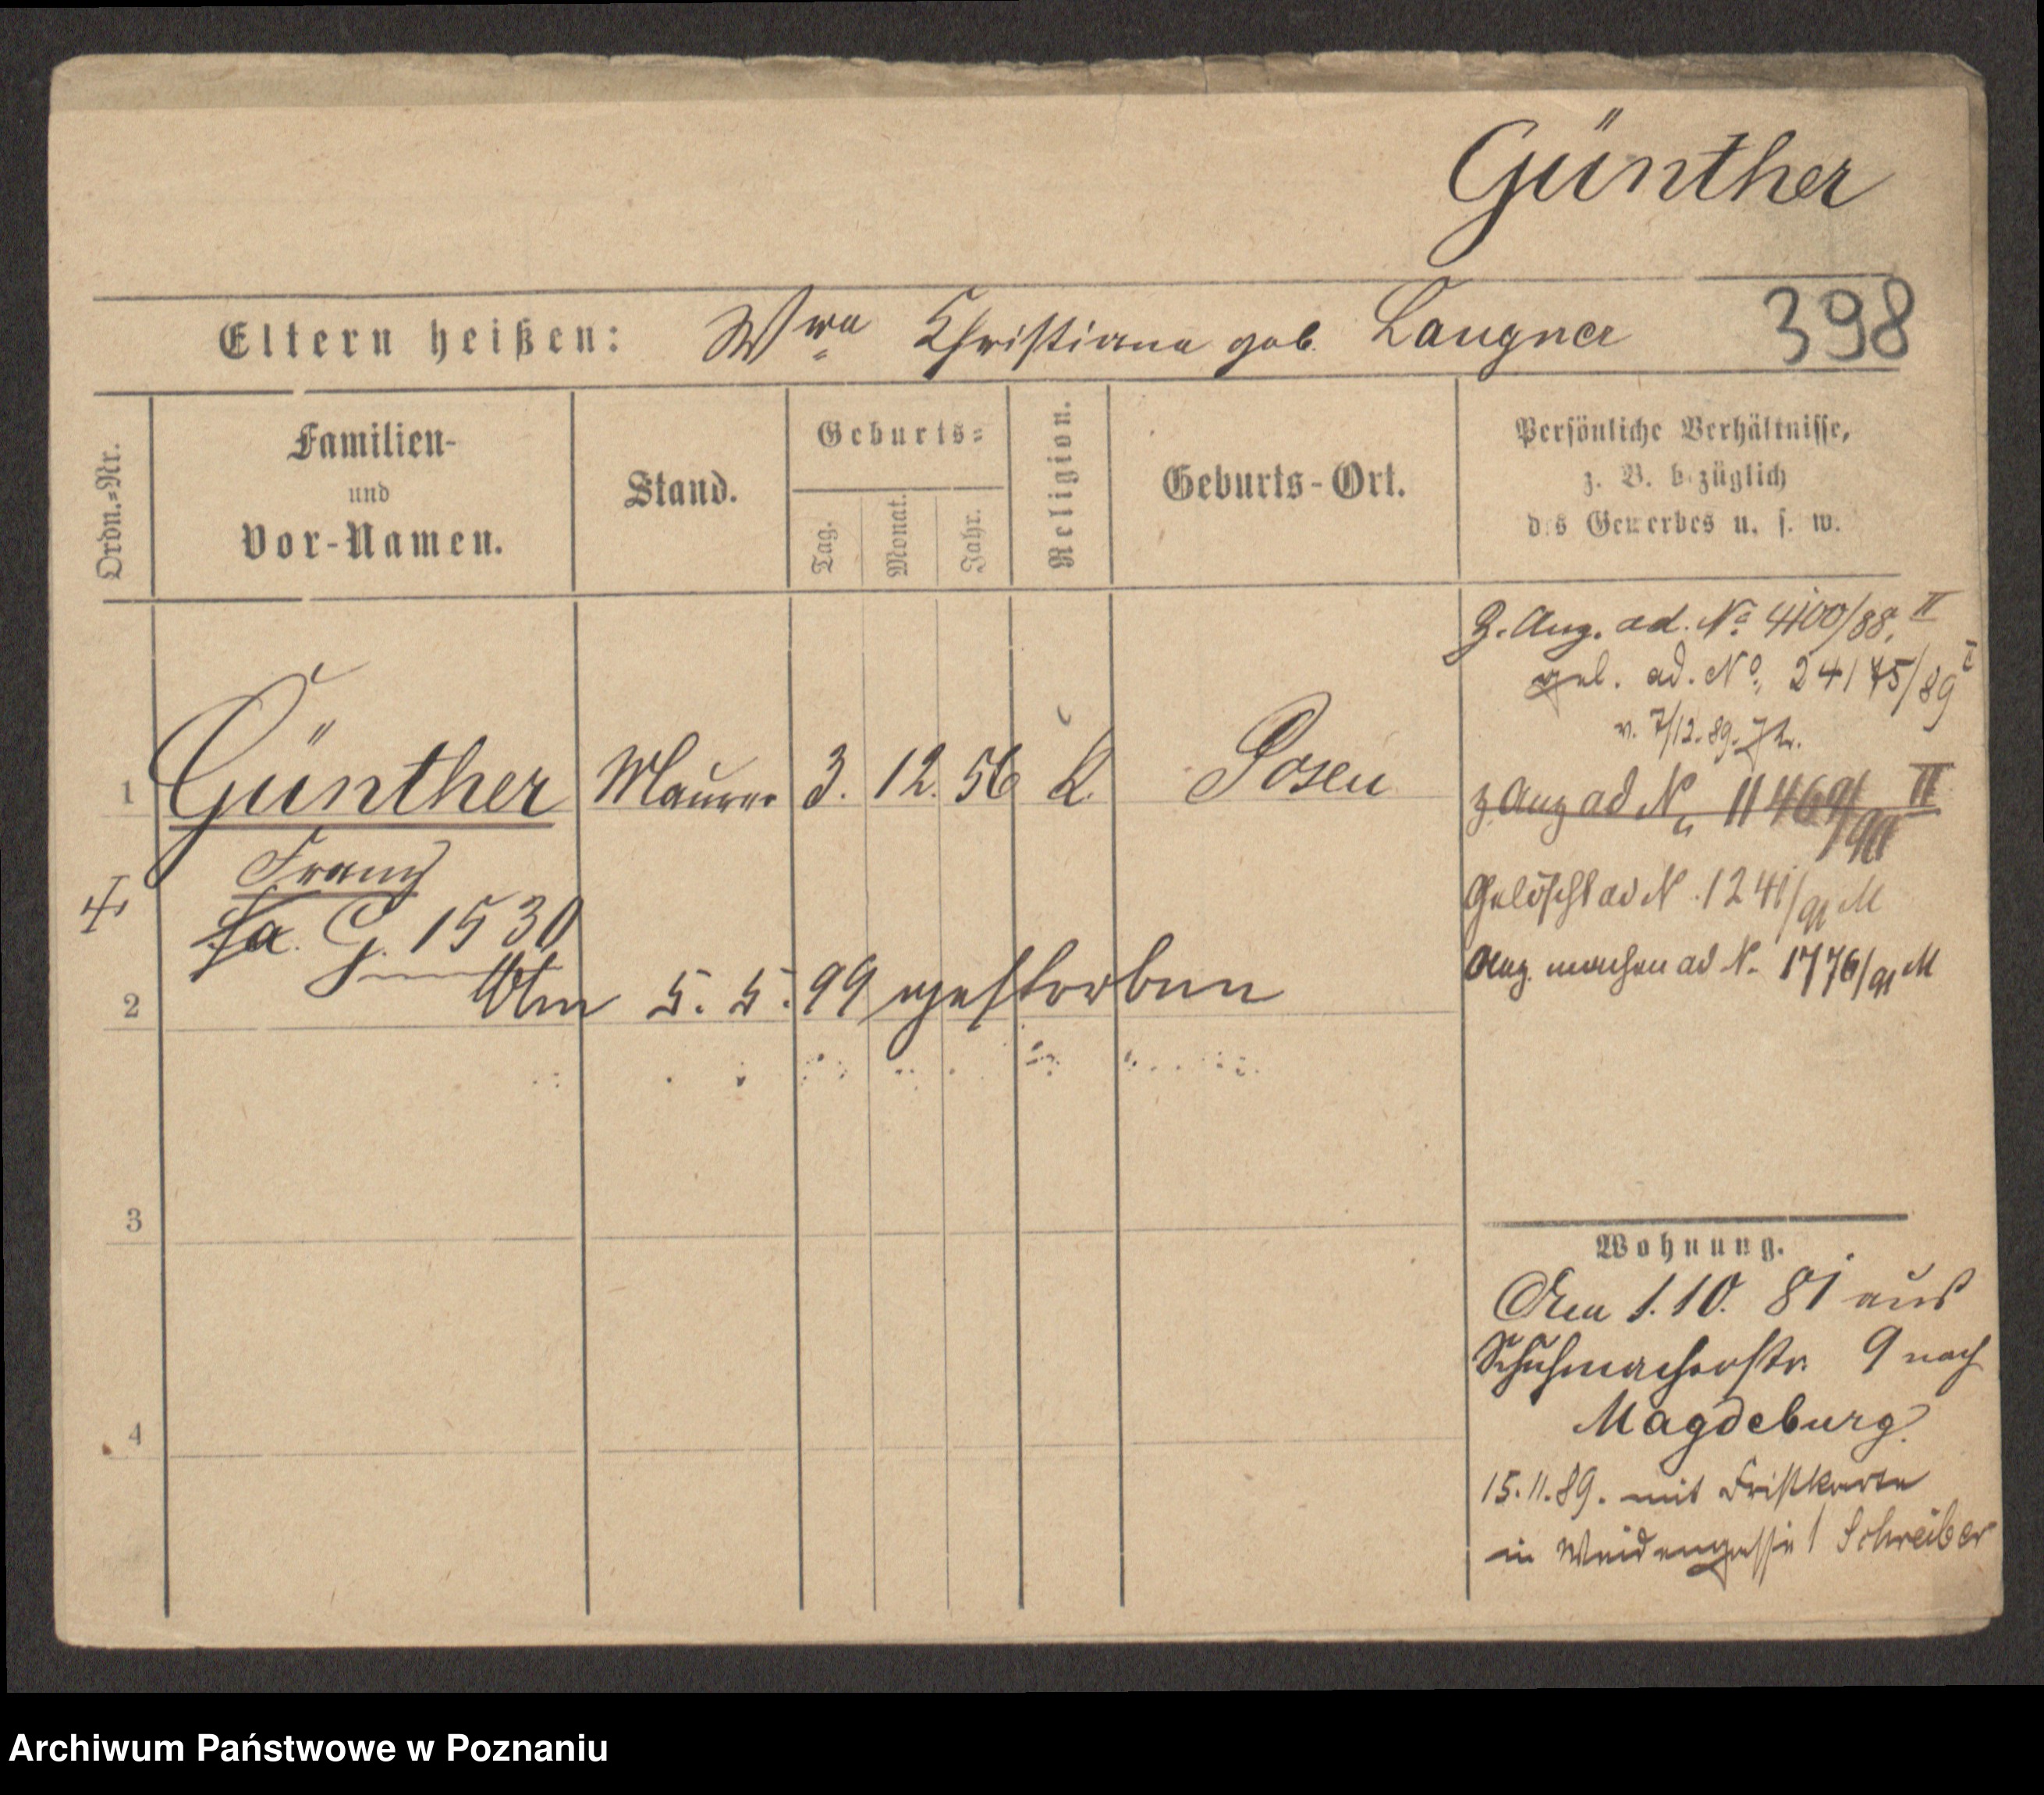 Günther
Eltern heißen: Wwe Christiana geb. Langner 398
Ordn.=Nr.
Familien-
und
Vor-Namen.
Stand.
Geburts=
Tag. Monat. Jahr.
Religion.
Geburts-Ort.
Persönliche Verhältnisse,
z. B. bezüglich
des Gewerbes u. s. w.
1 Günther Maurer 3. 12. 56 K. Posen
Franz
fa. G. 1530
2 Am 5. 5. 99 gestorben
3
4
Z. Anz. ad. No 4100/88. II
gel. ad. No 24175/89 I
v. 7/12.89.
z Anz ad N 11469/90 II
Gelöscht ad N. 1241/91 M
Anz. machen ad N. 1776/91 M
Wohnung.
Am 1.10. 81 aus
Schuhmacherstr. 9 nach
Magdeburg.
15.11.89. mit Fristkarte
in Weidengasse 1 Schreiber
Archiwum Państwowe w Poznaniu